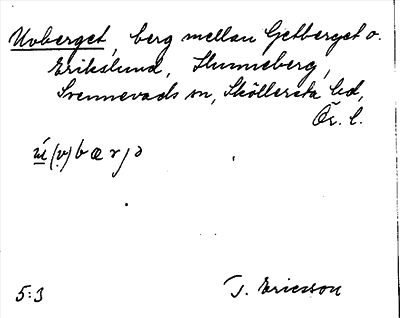 Uvberget, berg mellan Getberget o.
Erikslund, Slunneberg,
Svennevads sn, Sköllersta hd,
Ör. l.
ú(v)bærjə
5:3
T. Ericsson